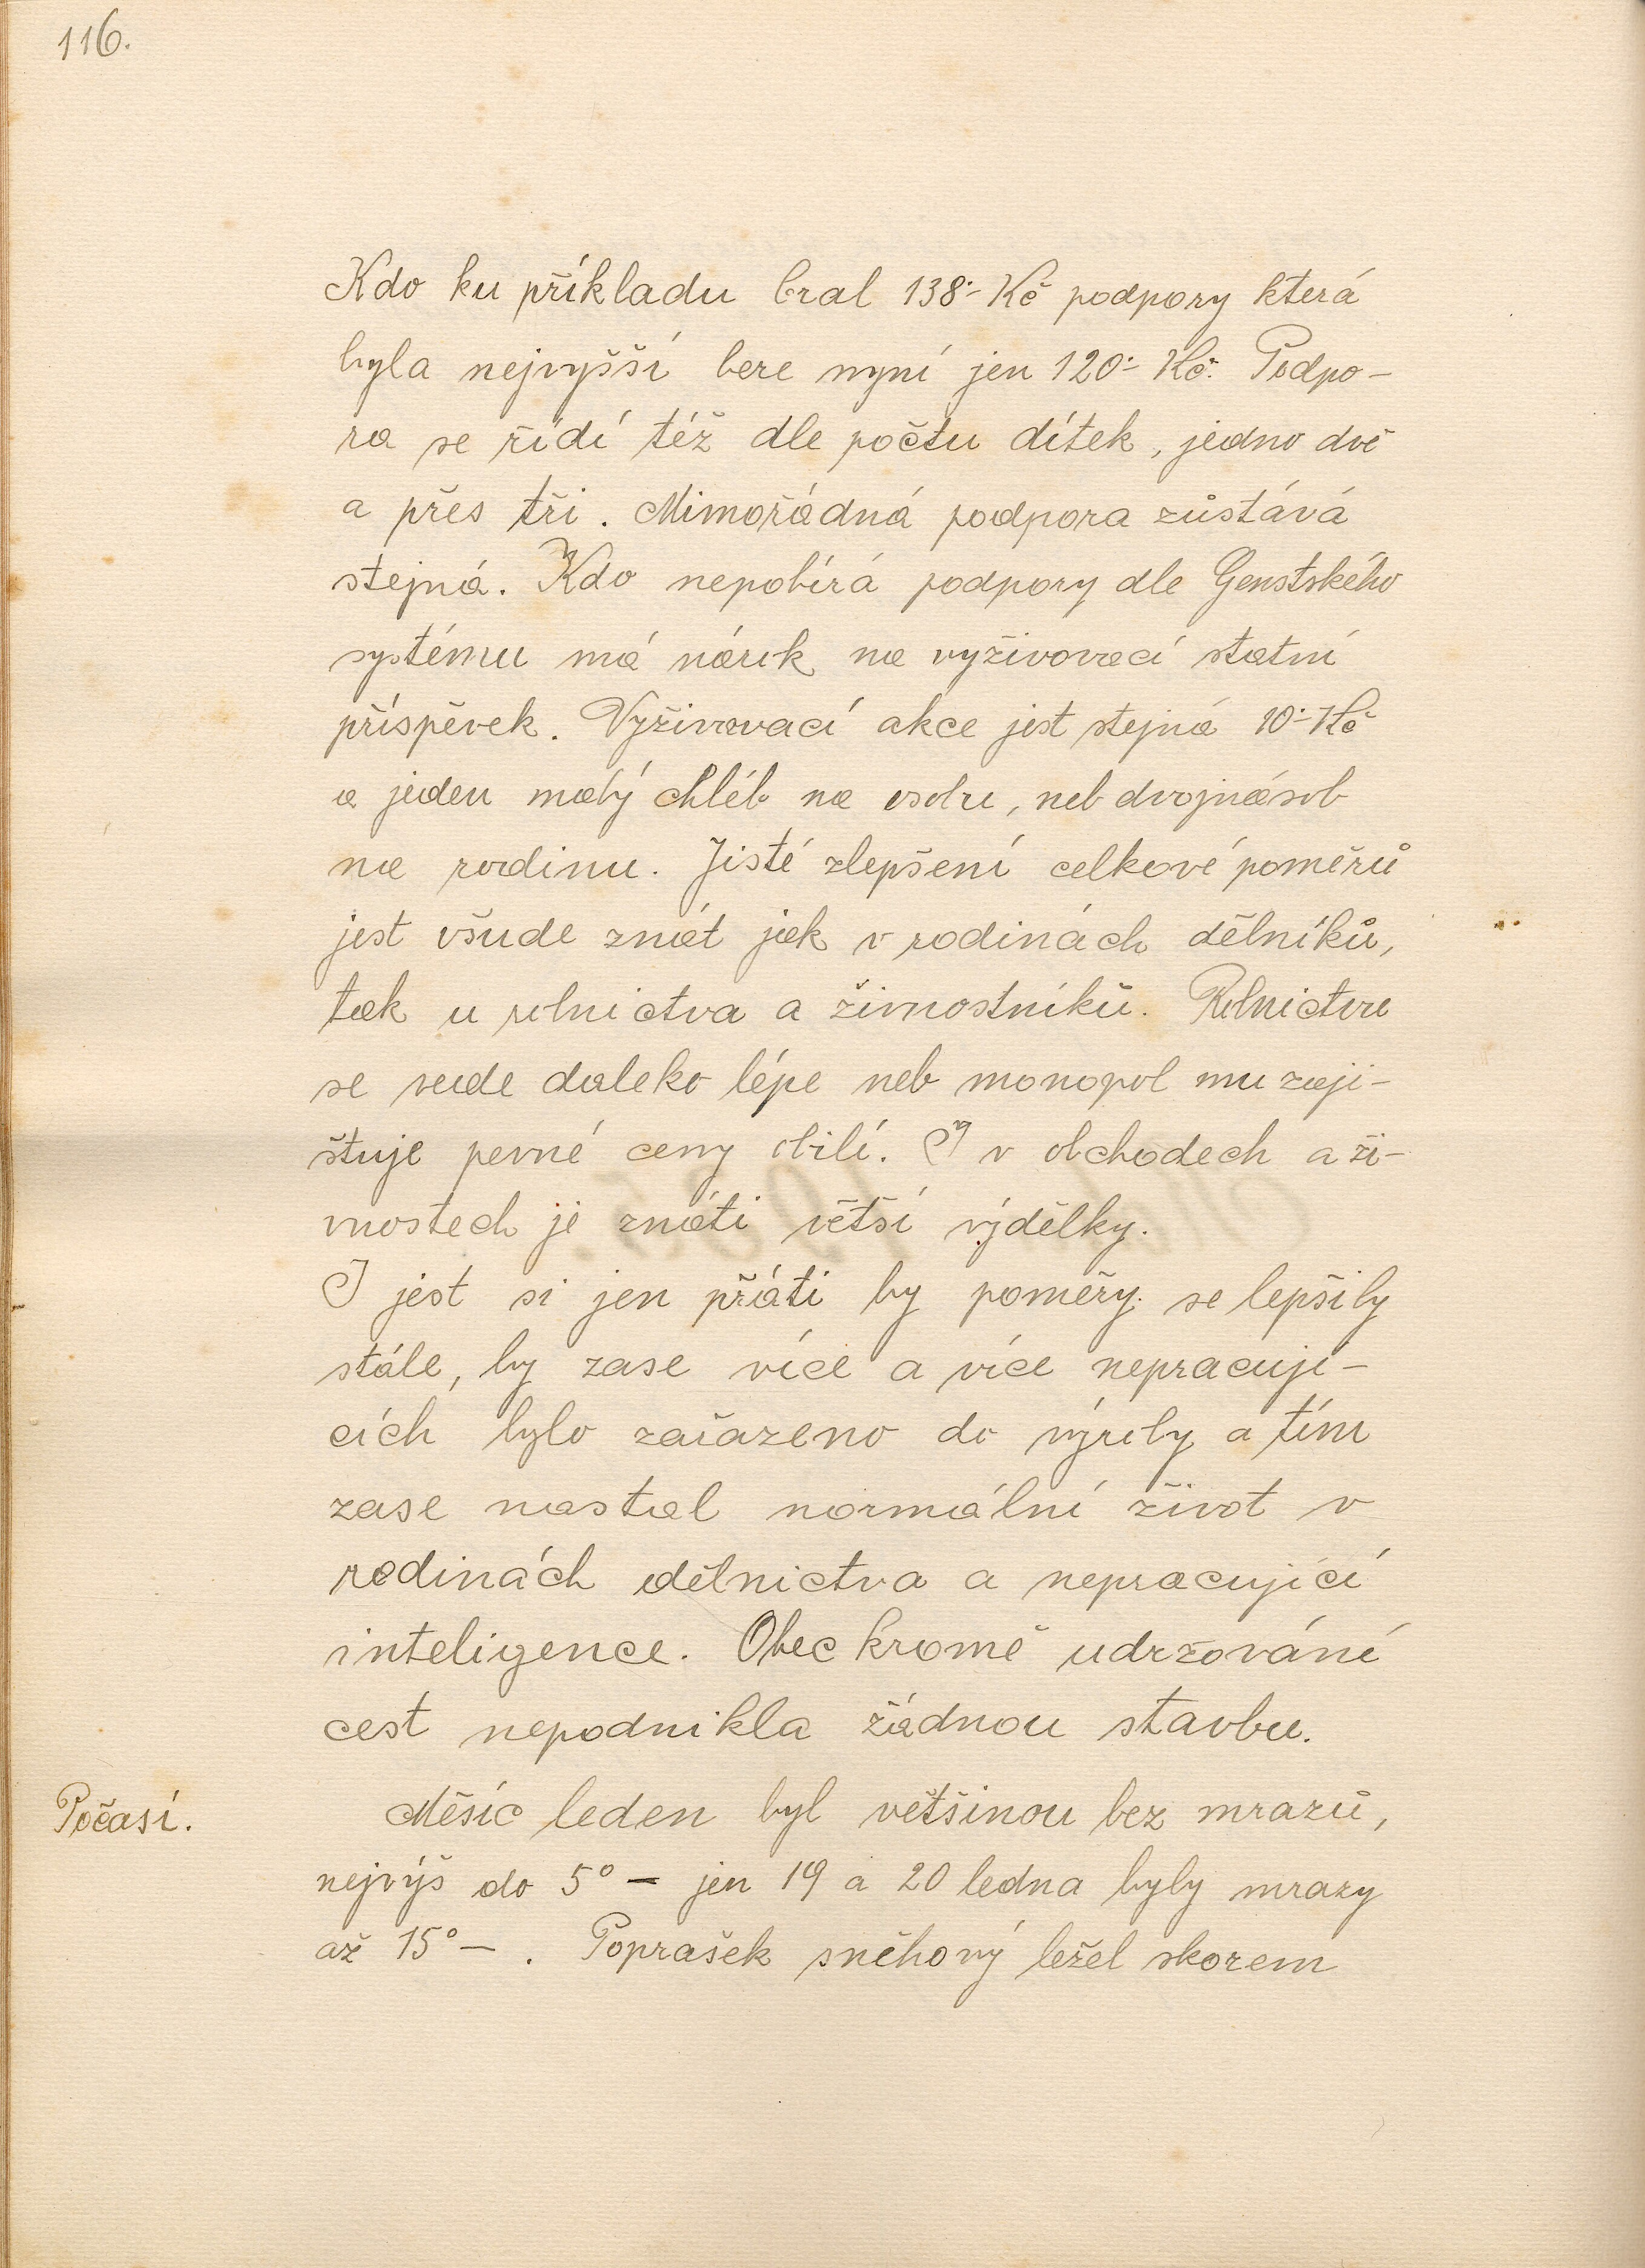 116.
Kdo ku příkladu bral 138·- Kč podpory která
byla nejvyšší bere nyní jen 120·- Kč. Podpo-
ra se řídí též dle počtu dítek, jedno dvě
a přes tři. Mimořádná podpora zůstává
stejná. Kdo nepobírá podpory dle Genstského
systému má nárok na vyživovací statní
příspěvek. Vyživovací akce jest stejná 10·- Kč
a jeden malý chléb na osobu, neb dvojnásob
na rodinu. Jisté zlepšení celkové poměrů
jest všude znát jak v rodinách dělníků,
tak u rolnictva a živnostníků. Rolnictvu
se vede daleko lépe neb monopol mu zaji-
štuje pevné ceny obilí. I v obchodech a ži-
vnostech je znáti větší výdělky.
I jest si jen přáti by poměry se lepšily
stále, by zase více a více nepracují-
cích bylo zařazeno do výroby a tím
zase nastal normální život v
rodinách dělnictva a nepracující
inteligence. Obec kromě udržování
cest nepodnikla žádnou stavbu.
Počasí.
Měsíc leden byl většinou bez mrazů,
nejvýš do 5° — jen 19 a 20 ledna byly mrazy
až 15° — . Poprašek sněhový ležel skorem